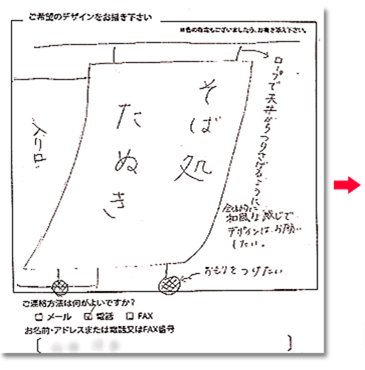 ご希望のデザインをお描き下さい
※色の指定もございましたら、お書き下さい。
ロープで天井からつりさげるように
そば処
たぬき
入り口
全体的に
和風な感じで
デザインはお願い
したい。
おもりをつけたい
ご連絡方法は何がよいですか?
□メール ☑電話 □FAX
お名前・アドレスまたは電話又はFAX番号